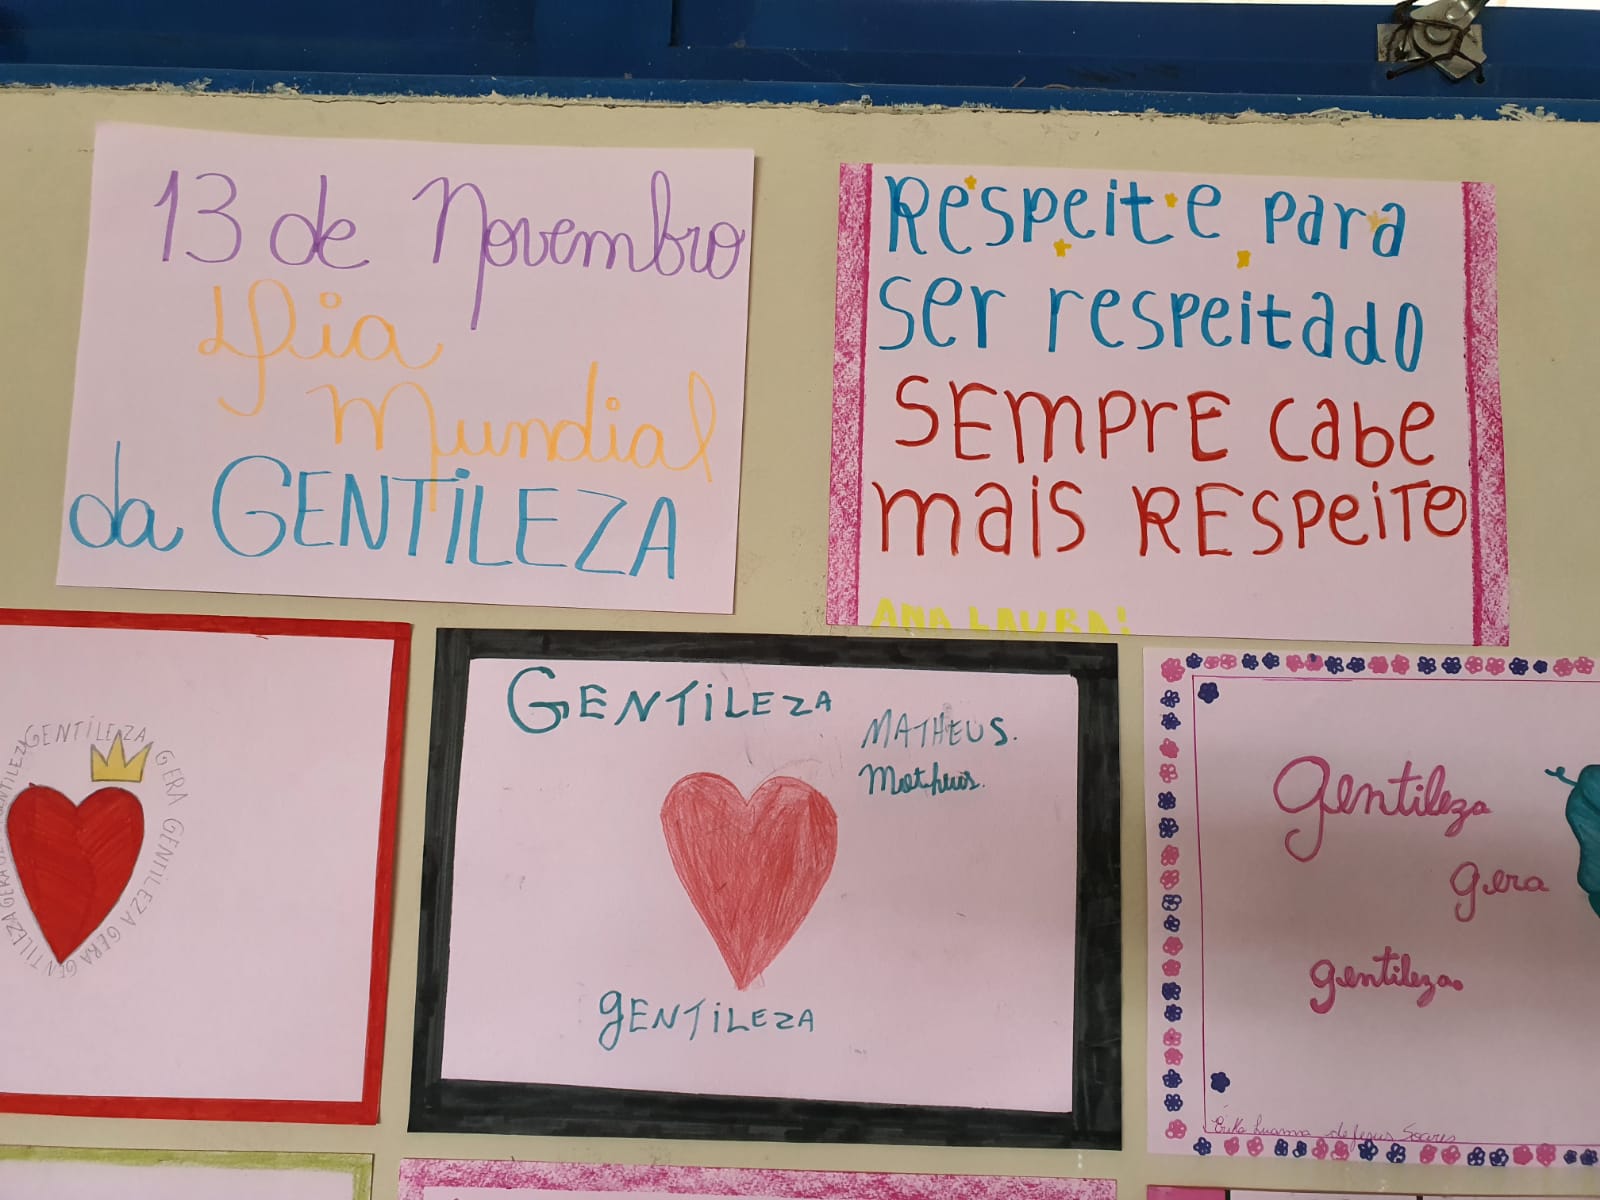 13 de Novembro
Dia
Mundial
da GENTILEZA
Respeite para
ser respeitado
SEMPRE cabe
mais RESPEITO
ANA LAURA!
GENTILEZA GERA GENTILEZA GERA GENTILEZA GERA GENTILEZA
GENTILEZA
MATHEUS.
Matheus.
gENTILEZA
Gentileza
gera
gentileza.
Érika Luanna de Jesus Soares